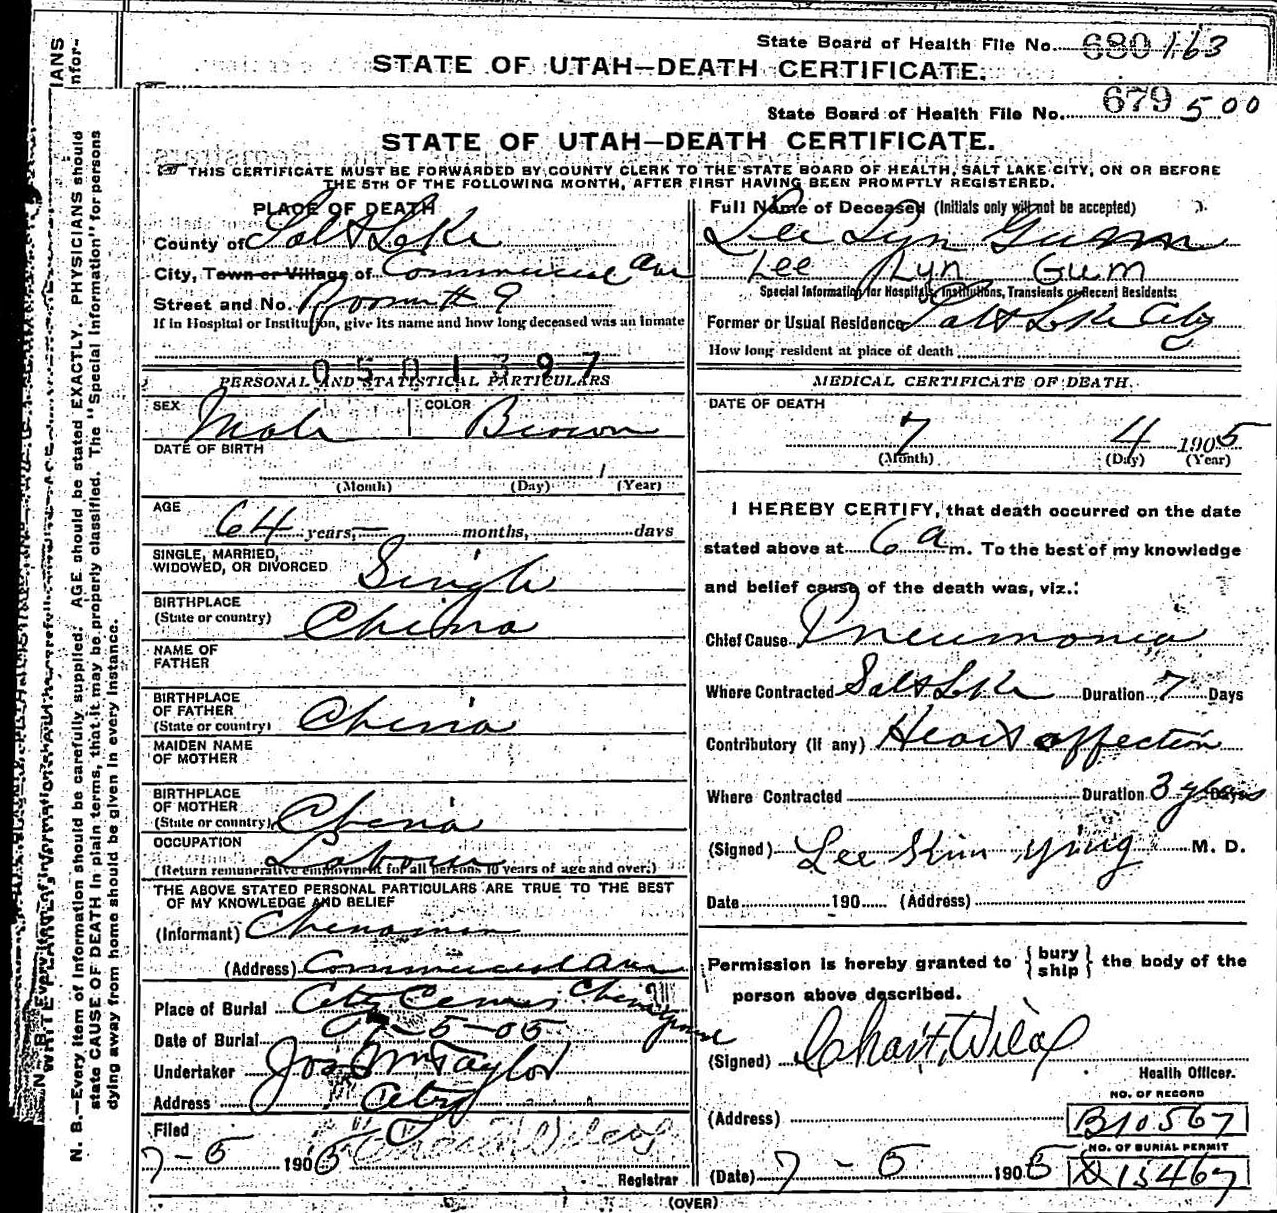 State Board of Health File No. 680 163
STATE OF UTAH—DEATH CERTIFICATE.
State Board of Health File No. 679 500
STATE OF UTAH—DEATH CERTIFICATE.
THIS CERTIFICATE MUST BE FORWARDED BY COUNTY CLERK TO THE STATE BOARD OF HEALTH, SALT LAKE CITY, ON OR BEFORE
THE 5TH OF THE FOLLOWING MONTH, AFTER FIRST HAVING BEEN PROMPTLY REGISTERED.
PLACE OF DEATH
County of Salt Lake
City, Town or Village of Commercial Ave
Street and No. Room # 9
If in Hospital or Institution, give its name and how long deceased was an inmate
0501397
PERSONAL AND STATISTICAL PARTICULARS
SEX Male COLOR Brown
DATE OF BIRTH
(Month) (Day) 1 (Year)
AGE
64 years, — months, days
SINGLE, MARRIED,
WIDOWED, OR DIVORCED Single
BIRTHPLACE
(State or country) China
NAME OF
FATHER
BIRTHPLACE
OF FATHER
(State or country) China
MAIDEN NAME
OF MOTHER
BIRTHPLACE
OF MOTHER
(State or country) China
OCCUPATION
Laborer
(Return remunerative employment for all persons 10 years of age and over.)
THE ABOVE STATED PERSONAL PARTICULARS ARE TRUE TO THE BEST
OF MY KNOWLEDGE AND BELIEF
(Informant) Chinamen
(Address) Commercial Ave
Place of Burial City Cem
Date of Burial 7-5-05
Undertaker Jos Wm Taylor
Address City
Filed
7-5 1905
Registrar
Full Name of Deceased (Initials only will not be accepted)
Lee Lyn Gum
Lee Lyn Gum
Special Information for Hospitals, Institutions, Transients or Recent Residents:
Former or Usual Residence Salt Lake City
How long resident at place of death
MEDICAL CERTIFICATE OF DEATH.
DATE OF DEATH
7 4 1905
(Month) (Day) (Year)
I HEREBY CERTIFY, that death occurred on the date
stated above at 6 a m. To the best of my knowledge
and belief cause of the death was, viz.:
Chief Cause Pneumonia
Where Contracted Salt Lake Duration 7 Days
Contributory (If any) Heart affection
Where Contracted Duration 3 years Days
(Signed) Lee Kim Ying M. D.
Date 190 (Address)
Permission is hereby granted to { bury ship } the body of the
person above described.
(Signed) Chas. Wilcox
Health Officer.
NO. OF RECORD
(Address) B10567
NO. OF BURIAL PERMIT
(Date) 7 - 5 1905 D15467
(OVER)
N. B.—Every item of information should be carefully supplied. AGE should be stated EXACTLY. PHYSICIANS should
state CAUSE OF DEATH in plain terms, that it may be properly classified. The "Special Information" for persons
dying away from home should be given in every instance.